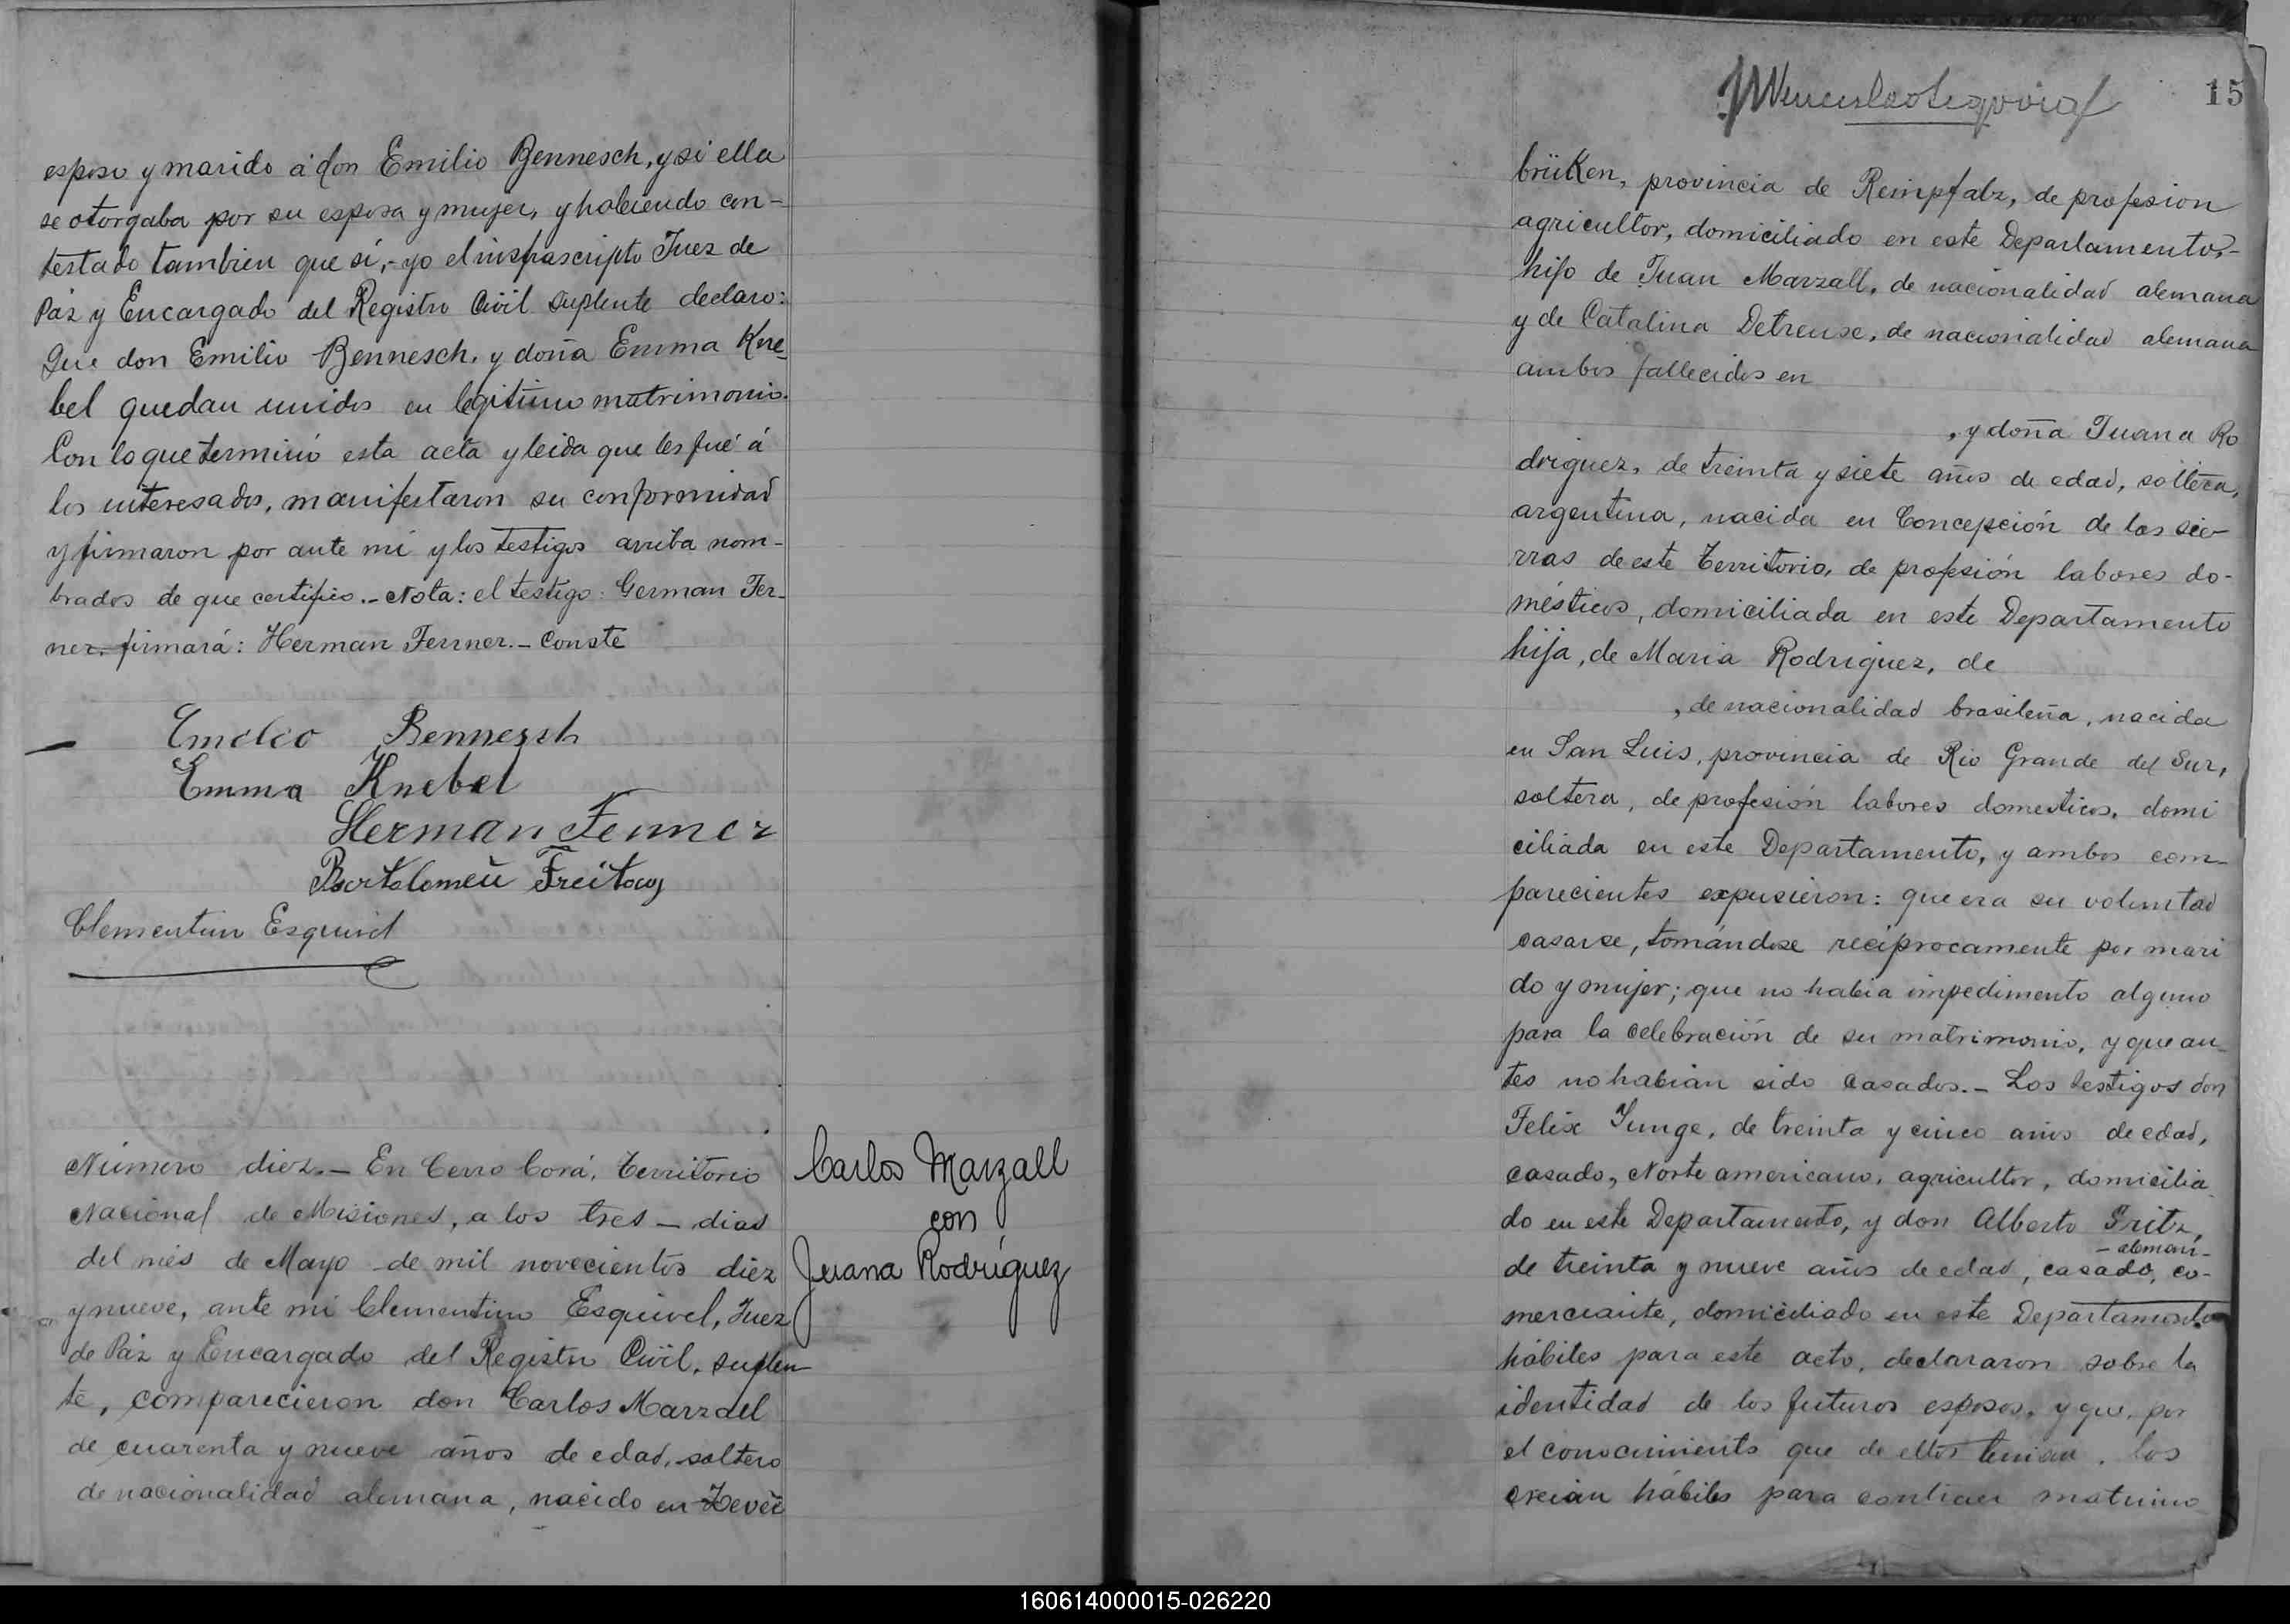 esposo y marido á don Emilio Bennesch, y si ella
se otorgaba por su esposa y mujer, y habiendo con-
testado tambien que sí,- yo el infrascripto Juez de
Páz y Encargado del Registro Civil suplente declaro:
Que don Emilio Bennesch, y doña Emma Kne-
bel quedan unidos en legitimo matrimonio.
Con lo que terminó esta acta y leida que les fué á
los interesados, manifestaron su conformidad
y firmaron por ante mi y los testigos arriba nom-
brados de que certifico.- Nota: el testigo: German Fer-
ner, firmará: Herman Fenner.- Conste
Emilio Bennesch
Emma Knebel
Herman Fenner
Bartolomeü Freitag
Clementino Esquivel
Número diez.- En Cerro Corá, Territorio
Nacional de Misiones, a los tres - dias
del més de Mayo de mil novecientos diez
y nueve, ante mi Clementino Esquivel, Juez
de Páz y Encargado del Registro Civil, suplen
te, comparecieron don Carlos Marzall
de cuarenta y nueve años de edad, soltero
de nacionalidad alemana, nacido en Zevei
Carlos Marzall
con
Juana Rodríguez
15
brüken, provincia de Reinpfalz, de profesion
agricultor, domiciliado en este Departamento,-
hijo de Juan Marzall, de nacionalidad alemana
y de Catalina Detreuse, de nacionalidad alemana
ambos fallecidos en
, y doña Juana Ro
driguez, de treinta y siete años de edad, soltera,
argentina, nacida en Concepción de las sie-
rras de este Territorio, de profesión labores do-
mésticos, domiciliada en este Departamento
hija, de Maria Rodriguez, de
, de nacionalidad brasileña, nacida
en San Luis, provincia de Rio Grande del Sur,
soltera, de profesión labores domesticos, domi
ciliada en este Departamento, y ambos com-
parecientes expusieron: que era su voluntad
casarse, tomándose recíprocamente por mari
do y mujer; que no habia impedimento alguno
para la celebración de su matrimonio, y que an-
tes no habian sido casados.- Los testigos don
Felix Junge, de treinta y cinco años de edad,
casado, Norte americano, agricultor, domicilia
do en este Departamento, y don Alberto Fritz,
- aleman -
de treinta y nueve años de edad, casado, co-
merciante, domiciliado en este Departamento
hábiles para este acto, declararon sobre la
identidad de los futuros esposos, y que, por
el conocimiento que de ellos tenian, los
creian hábiles para contraer matrimo
160614000015-026220